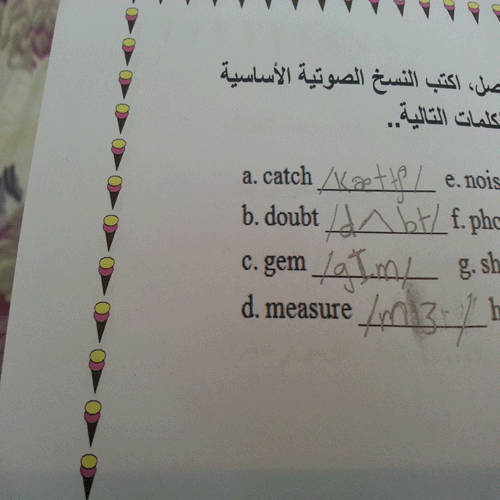 صل، اكتب النسخ الصوتية الأساسية
كلمات التالية..
a. catch /kætʃ/ e. nois
b. doubt /dʌbt/ f. pho
c. gem /gIm/ g. sh
d. measure h